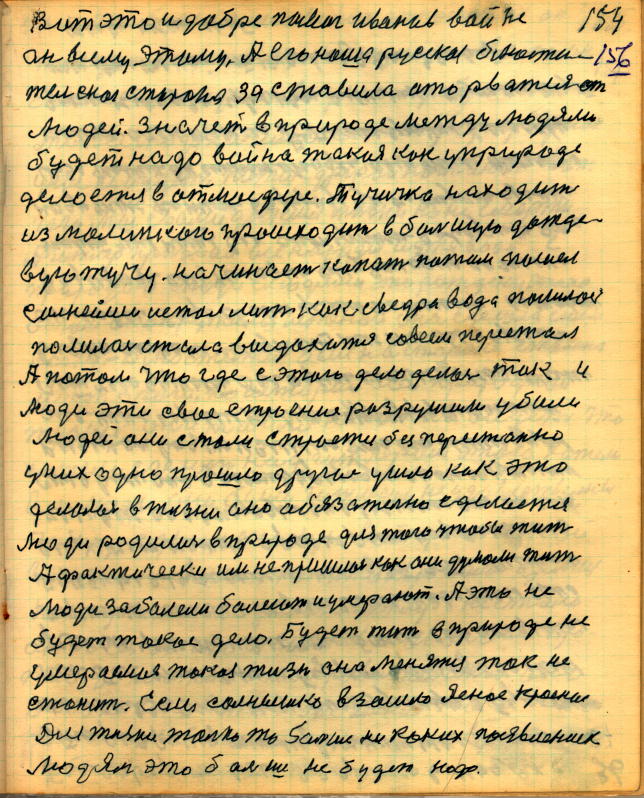 Вот это и добре помог иванав войне 154
он всему этому. А Его наша русская богати- 156
телская старона заставила оторватся от
Людей. Значет в природе между людями
будет надо война такая как у природе
делоется в атмосфере. Тучичка находит
из малинкого происходит в болшую дожде-
вую тучу. начинает капат потом пошел
силнейши и стал лит как сведра вода полилас
полилас стала выдохатся совсем перестал
А потом что где с этого дело делас так и
Люди эти свое строение разрушили убили
Людей они стали строется без перестанно
у них одно прошло другое ушло как это
делалас в жизни оно обязателно сделается
Люди родилис в природе для того чтобы жит
А фактически им не пришлос как они думоли жит
Люди заболели болеют и умерают. А это не
будет такое дело. Будет жит в природе не
умераемая такая жизн она менятся так не
станит. Если солнышко взошло ясное красное
Для жизни толко то болше ни каких появлениях
Людям это болше не будет надо.